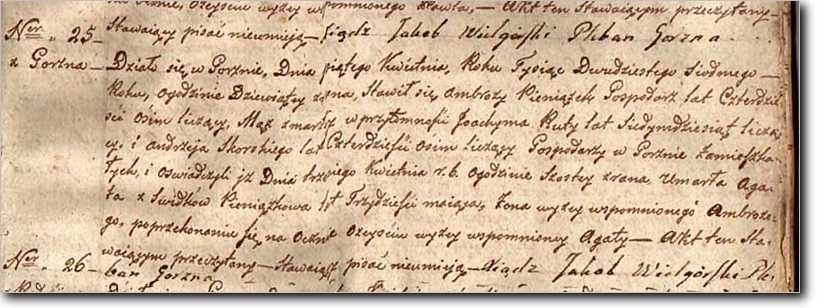 wyżej wspomnionego Pawła, – Akt ten Stawaiącym przeczytany –
Ner. 25 – Stawaiący pisać nieumieią – Xiądz Jakob Wielgórski Pleban Gorzna
z Gorzna – Działo się w Gorznie, Dnia piątego Kwietnia, Roku Tysiąc Dwudziestego Siodmego –
Roku, ogodzinie Dziewiątey zrana, Stawił się Ambroży Pieniążek, Gospodarz lat Czterdzie
ści Osim liczący, Mąż zmarłey w przytomności Joachyma Ruty lat Siedymdziesiąt licza
cy, i Andrzeja Skorskiego lat Czterdzieści Osim liczący Gospodarzy w Gorznie Zamieszka
łych, i Oswiadczyli iż Dnia trzeciego Kwietnia r. b. Ogodzinie Szostey zrana, Umarła Aga
ta z Świdków Pieniążkowa lat Trzydzieści maiąca, Żona wyżey wspomnionego Ambroże
go, poprzekonaniu się na Ocznie o zeyściu wyżey wspomnioney Agaty – Akt ten Sta
waiącym przeczytany – Stawaiący pisać nieumieią – Xiądz Jakob Wielgórski Ple
Ner. 26 – ban Gorzna